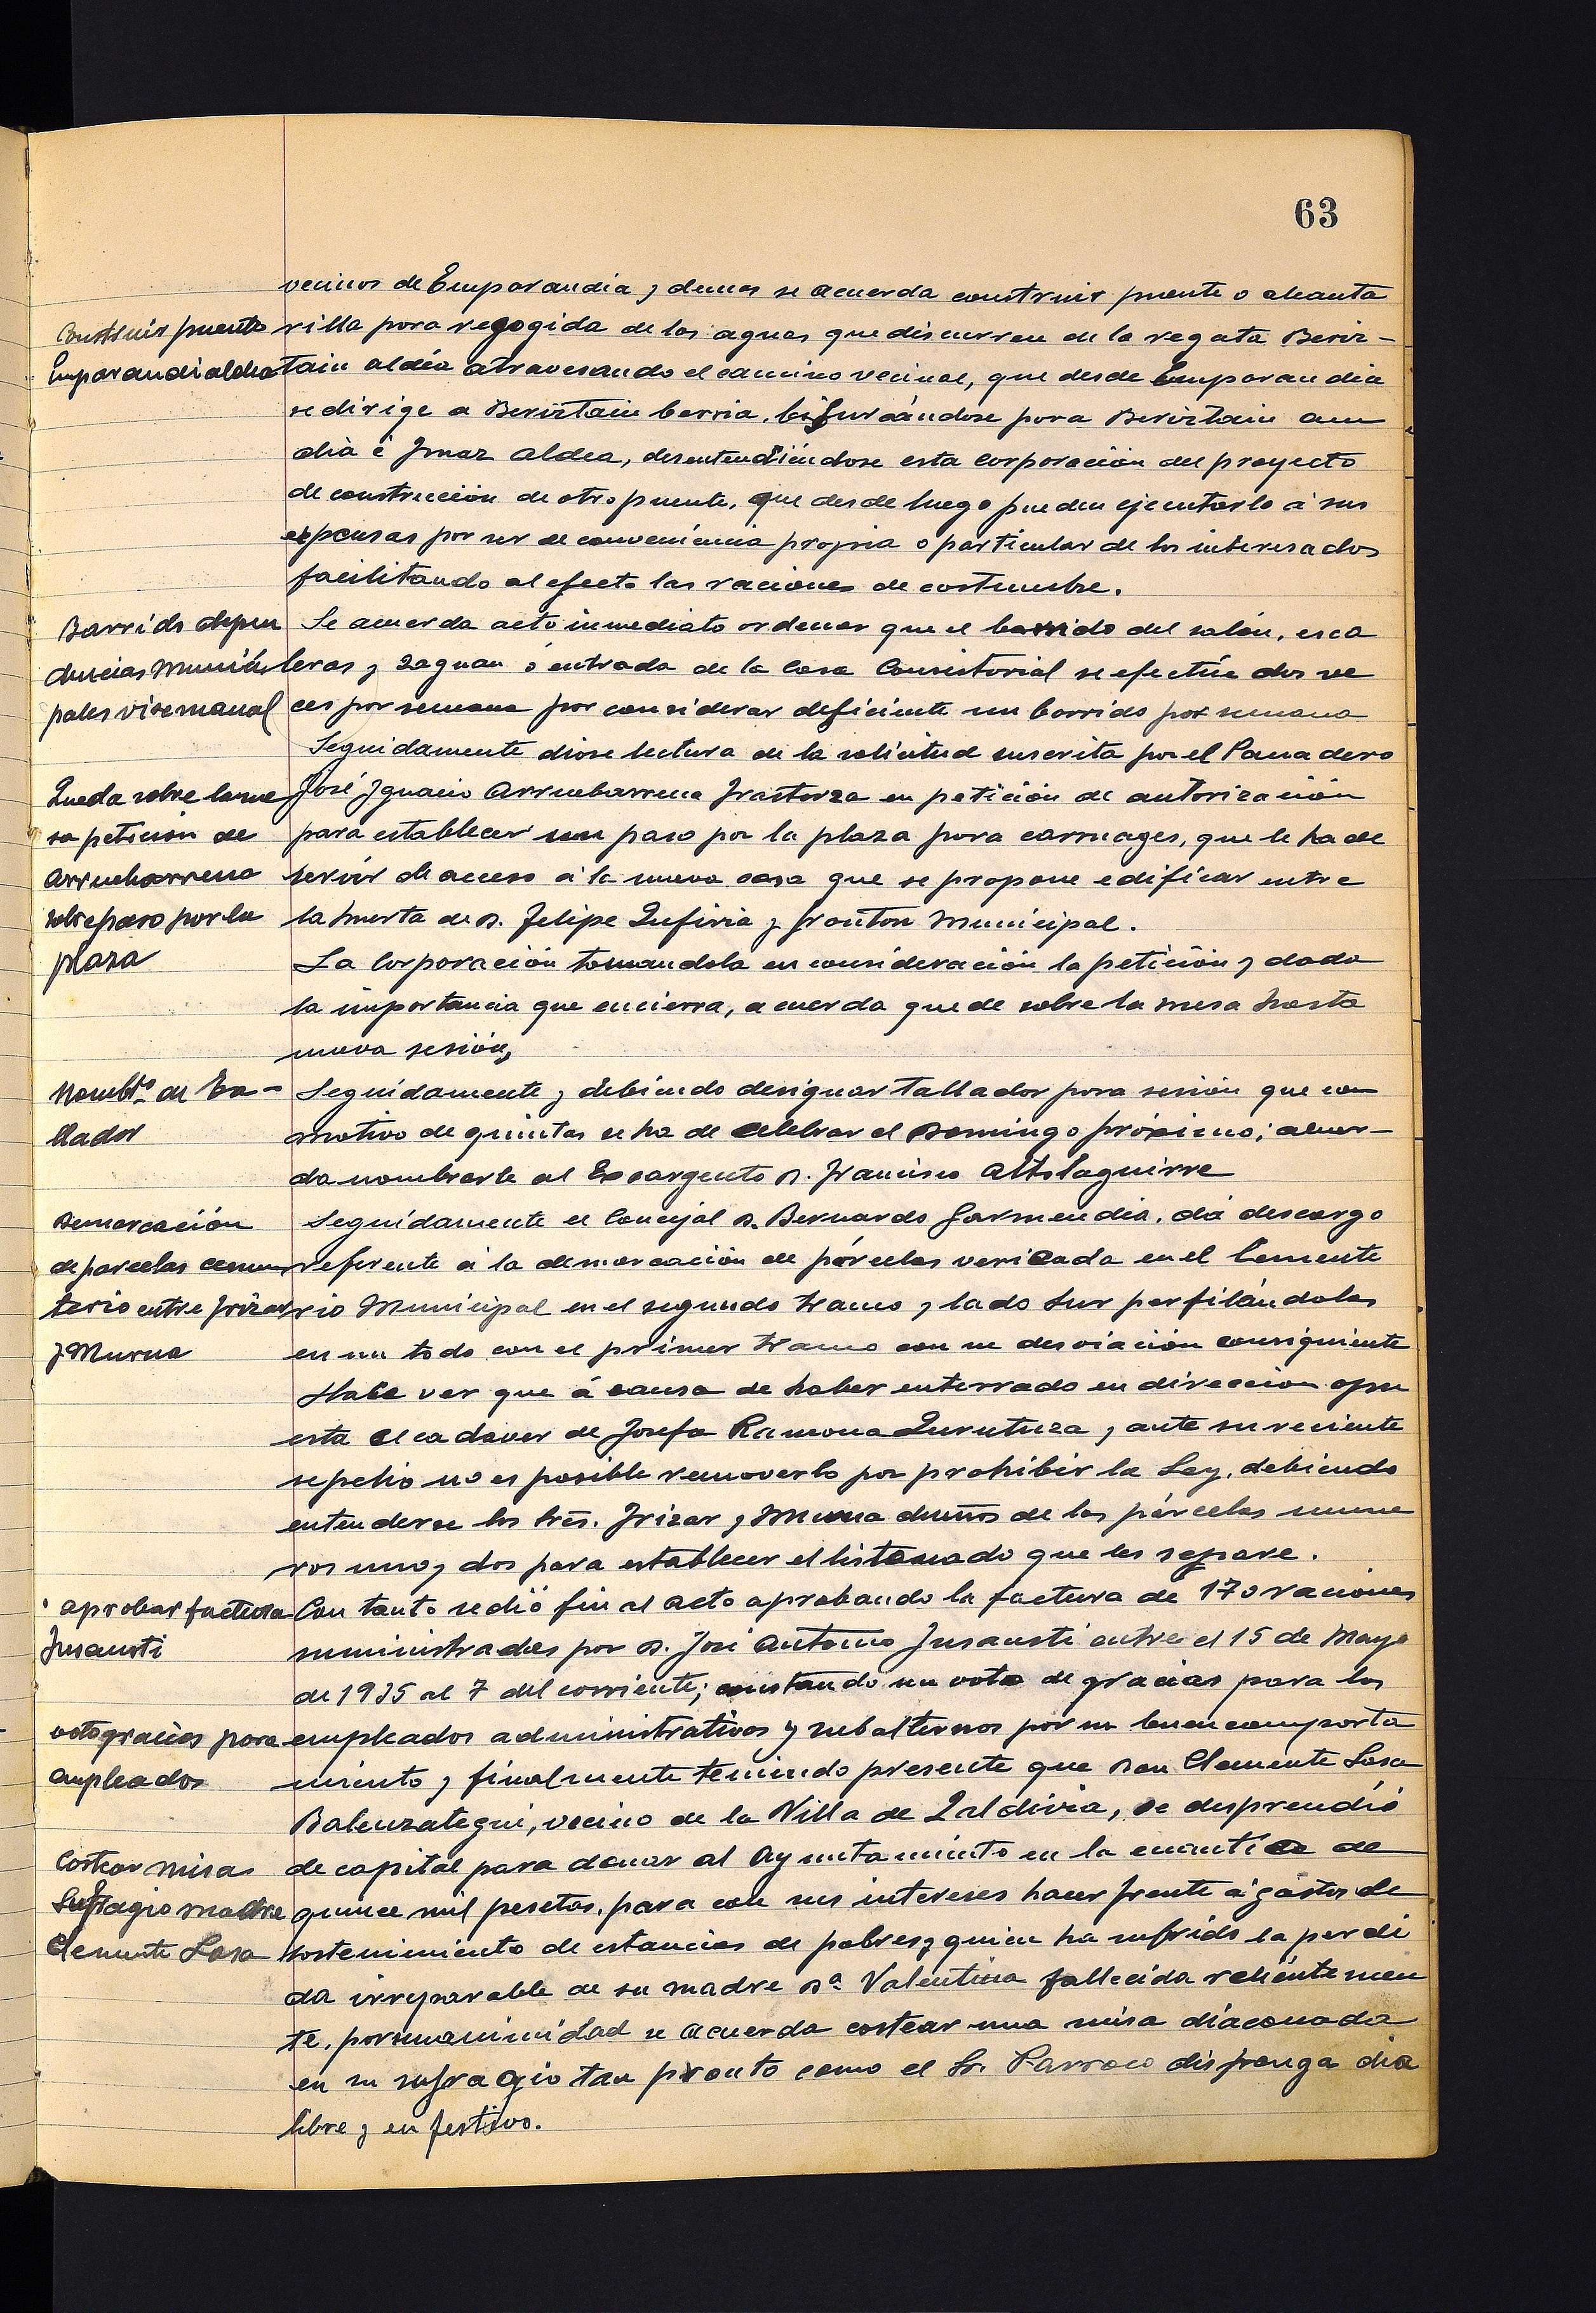 63
vecinos de Emparandia y demas se acuerda construir puente o alcanta
Construir puente
Emparandi aldea
rilla para regogida de las aguas que discurren de la regata Beriz-
tain aldea atravesando el camino vecinal, que desde Emparan dia
se dirige a Beriztain berria, bifurcándose para Beriztain aun
dia é Imaz aldea, desentendiéndose esta corporación del proyecto
de construcción de otro puente, que desde luego pueden ejecutarlo a sus
expensas por ser de conveniencia propia o particular de los interesados
facilitando al efecto las raciones de costumbre.
Barrido depen
dencias Munici
pales visemanal
Se acuerda acto inmediato ordenar que el barrido del salón, esca
leras y zaguan ó entrada de la Casa Consistorial se efectúe dos ve
ces por semana por considerar deficiente un barrido por semana
Seguidamente diose lectura de la solicitud suscrita por el Panadero
Queda sobre la me
sa petición de
Arruebarrena
sobre paso por la
plaza
José Ignacio Arruebarrena Irastorza en petición de autorización
para establecer un paso por la plaza para carruages, que le ha de
servir de acceso a la nueva casa que se propone edificar entre
la huerta de D. Felipe Zufiria y fronton Municipal.
La Corporación tomandola en consideración la petición y dada
la importancia que encierra, acuerda quede sobre la mesa hasta
nueva sesión,
Nombto de Ta-
llador
Seguidamente y debiendo designar tallador para sesión que con
motivo de quintas se ha de celebrar el Domingo próximo; acuer-
da nombrarle al Exsargento D. Francisco Altolaguirre
Demarcación
de parcelas cemen
terio entre Irizar
y Murua
Seguidamente el Concejal D. Bernardo Garmendia, dá descargo
referente a la demarcación de párcelas vericada en el Cemente
rio Municipal en el segundo tramo y lado Sur perfilándolas
en un todo con el primer tramo con su desviación consiguiente
Hace ver que á causa de haber enterrado en direccion opu
esta el cadaver de Josefa Ramona Zurutuza y ante su reciente
sepelio no es posible removerlo por prohibir la Ley, debiendo
entenderse los Sres. Irizar y Murua dueños de las párcelas nume
ros uno y dos para establecer el listonado que les separe.
Aprobar factura
Insausti
Con tanto se dió fin al acto aprobando la factura de 170 raciones
suministrades por D. José Antonio Insausti entre el 15 de Mayo
de 1935 al 7 del corriente; constando un voto de gracias para los
voto gracias para
empleados
empleados administrativos y subalternos por su buen comporta
miento y finalmente teniendo presente que Don Clemente Lasa
Balenzategui, vecino de la Villa de Zaldivia, se desprendió
Costear misa
Sufragio madre
Clemente Lasa
de capital para donar al Ayuntamiento en la cuantía de
quince mil pesetas, para con sus intereses hacer frente á gastos de
sostenimiento de estancias de pobres y quien ha sufrido la perdi
da irreparable de su madre Dª Valentina fallecida recientemen
te, por unanimidad se acuerda costear una misa diaconada
en su sufragio tan pronto como el Sr. Parroco disponga dia
libre y en festivo.